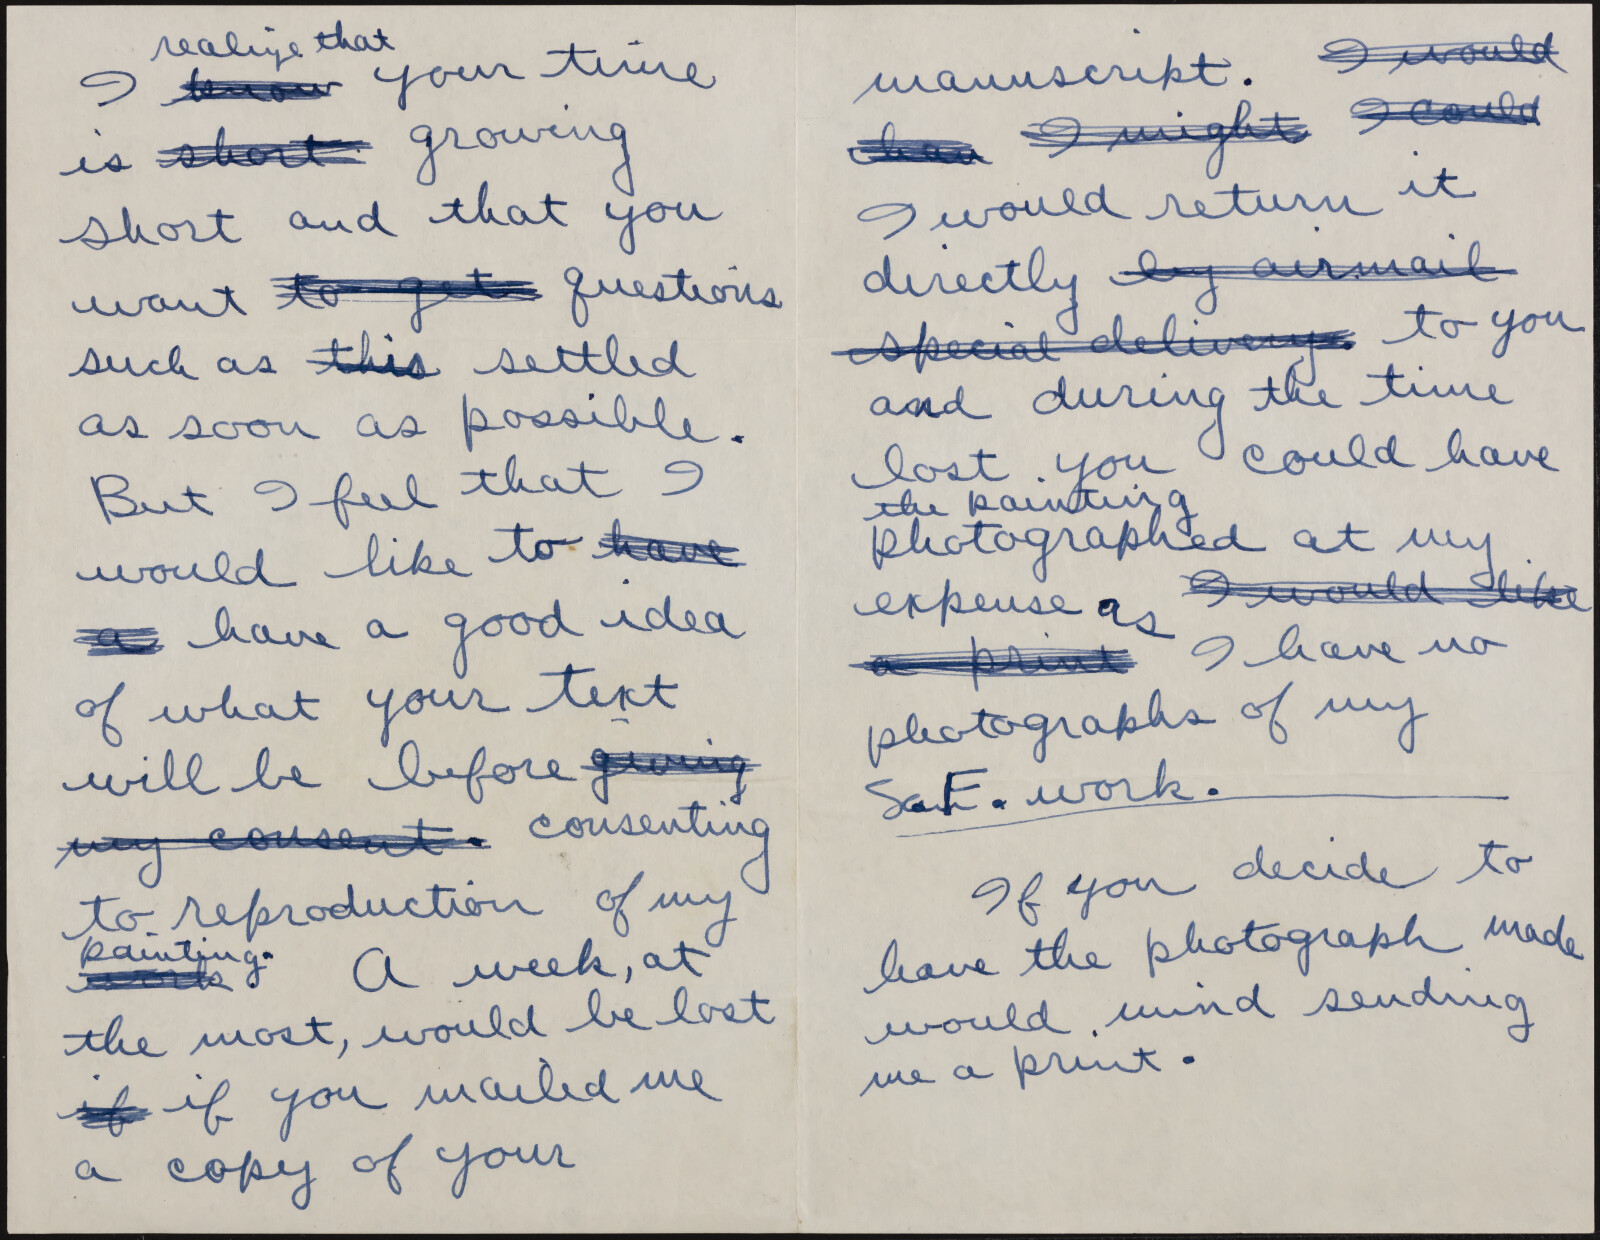 realize that
I know your time
is short growing
short and that you
want to get questions
such as this settled
as soon as possible.
But I feel that I
would like to have
a have a good idea
of what your text
will be before giving
my consent. consenting
to reproduction of my
painting.
works. A week, at
the most, would be lost
if if you mailed me
a copy of your
manuscript. I would
hav I might I could
I would return it
directly by airmail
special delivery. to you
and during the time
lost you could have
the painting
photographed at my
expense as I would like
a print I have no
photographs of my
San F. work.
If you decide to
have the photograph made
would mind sending
me a print.